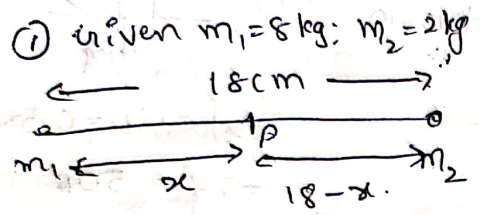 ① Given m₁=8kg; m₂=2kg
18cm
P
m₁ x 18-x. m₂